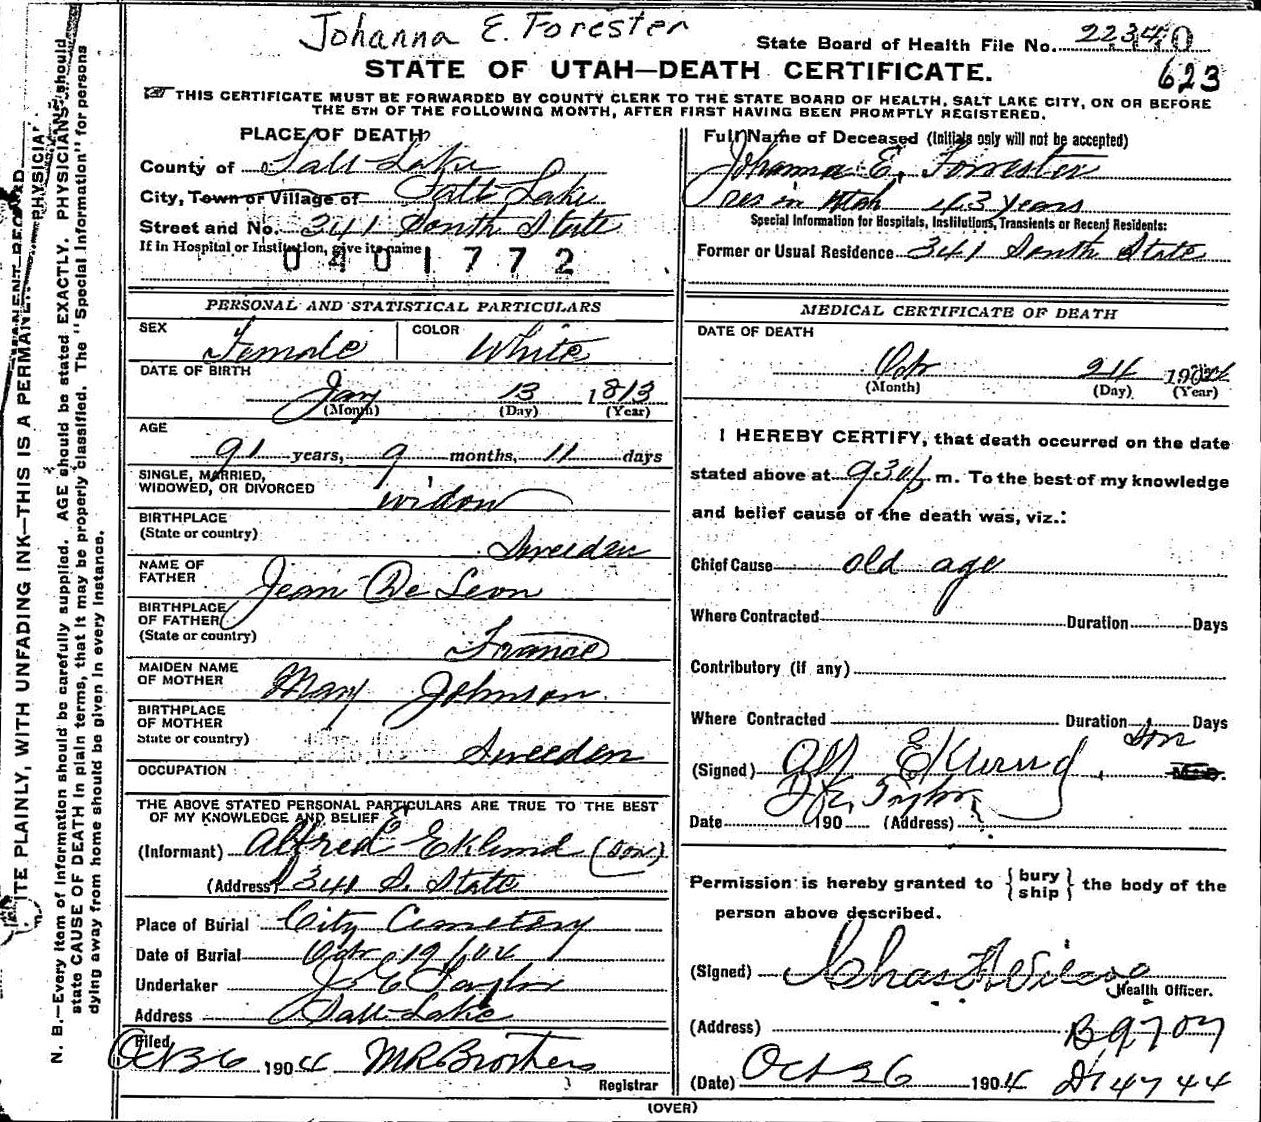 Johanna E. Forester
State Board of Health File No. 22340
STATE OF UTAH—DEATH CERTIFICATE.
623
THIS CERTIFICATE MUST BE FORWARDED BY COUNTY CLERK TO THE STATE BOARD OF HEALTH, SALT LAKE CITY, ON OR BEFORE
THE 5TH OF THE FOLLOWING MONTH, AFTER FIRST HAVING BEEN PROMPTLY REGISTERED.
PLACE OF DEATH
County of Salt Lake
City, Town or Village of Salt Lake
Street and No. 341 South State
If in Hospital or Institution, give its name
0401772
PERSONAL AND STATISTICAL PARTICULARS
SEX Female COLOR White
DATE OF BIRTH
Jany 13 1813
(Month) (Day) (Year)
AGE
91 years, 9 months, 11 days
SINGLE, MARRIED,
WIDOWED, OR DIVORCED widow
BIRTHPLACE
(State or country) Sweeden
NAME OF
FATHER Jean De Leon
BIRTHPLACE
OF FATHER
(State or country) France
MAIDEN NAME
OF MOTHER Mary Johnson
BIRTHPLACE
OF MOTHER
State or country) Sweeden
OCCUPATION
THE ABOVE STATED PERSONAL PARTICULARS ARE TRUE TO THE BEST
OF MY KNOWLEDGE AND BELIEF
(Informant) Alfred Eklund (son)
(Address) 341 S. State
Place of Burial City Cemetery
Date of Burial
Undertaker J E Taylor
Address Salt Lake
Filed
Oct 26 1904 M R Brothers
Registrar
Full Name of Deceased (Initials only will not be accepted)
Johanna E. Forrester
res in Utah 43 years
Special Information for Hospitals, Institutions, Transients or Recent Residents:
Former or Usual Residence 341 South State
MEDICAL CERTIFICATE OF DEATH
DATE OF DEATH
Oct 24 1904
(Month) (Day) (Year)
I HEREBY CERTIFY, that death occurred on the date
stated above at 930 p m. To the best of my knowledge
and belief cause of the death was, viz.:
Chief Cause old age
Where Contracted Duration Days
Contributory (if any)
Where Contracted Duration Days
son
(Signed) Alf Eklund M.D.
Date 190 (Address)
Permission is hereby granted to {bury ship} the body of the
person above described.
(Signed)
Health Officer.
(Address) B9707
(Date) Oct 26 1904 D14744
(OVER)
N. B.—Every item of information should be carefully supplied. AGE should be stated EXACTLY. PHYSICIANS should
state CAUSE OF DEATH in plain terms, that it may be properly classified. The "Special Information" for persons
dying away from home should be given in every instance.
ITE PLAINLY, WITH UNFADING INK—THIS IS A PERMANE